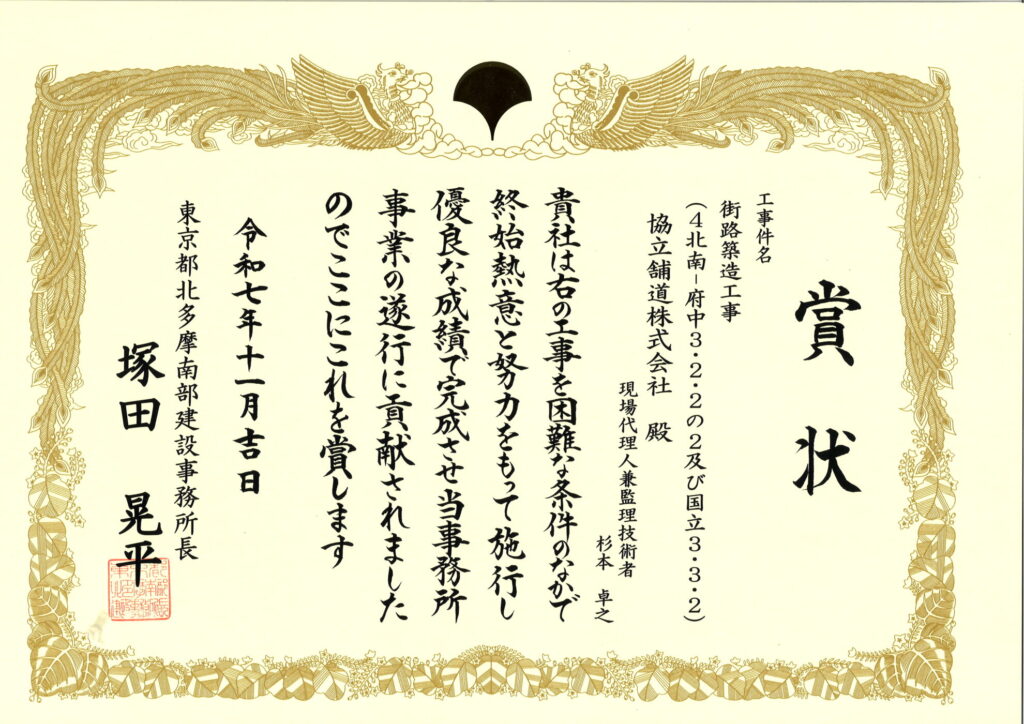 賞状
工事件名
街路築造工事
（４北南－府中３・２・２の２及び国立３・３・２）
協立舗道株式会社　殿
現場代理人兼監理技術者
杉本　卓之
貴社は右の工事を困難な条件のなかで
終始熱意と努力をもって施行し
優良な成績で完成させ当事務所
事業の遂行に貢献されました
のでここにこれを賞します
令和七年十一月吉日
東京都北多摩南部建設事務所長
塚田　晃平